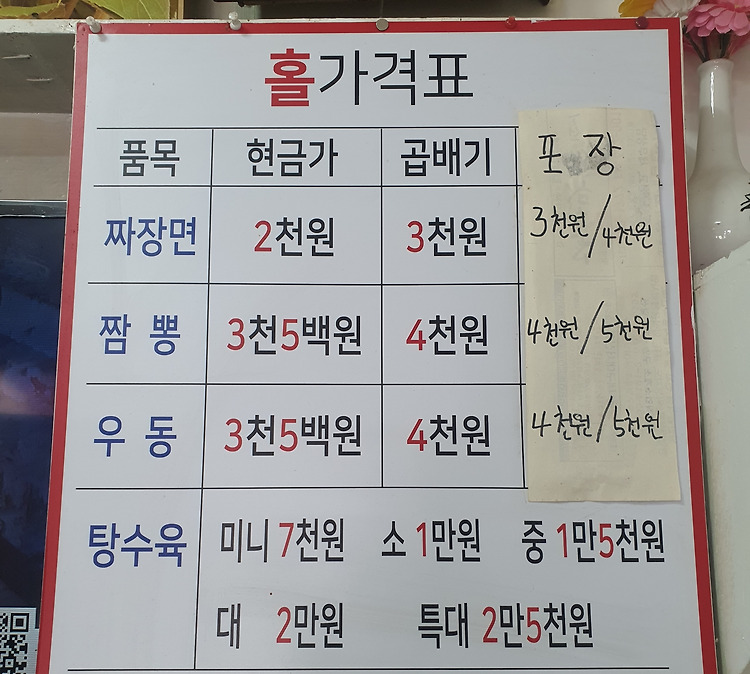 홀가격표
품목 현금가 곱배기 포장
짜장면 2천원 3천원 3천원/4천원
짬뽕 3천5백원 4천원 4천원/5천원
우동 3천5백원 4천원 4천원/5천원
탕수육 미니 7천원 소 1만원 중 1만5천원
대 2만원 특대 2만5천원